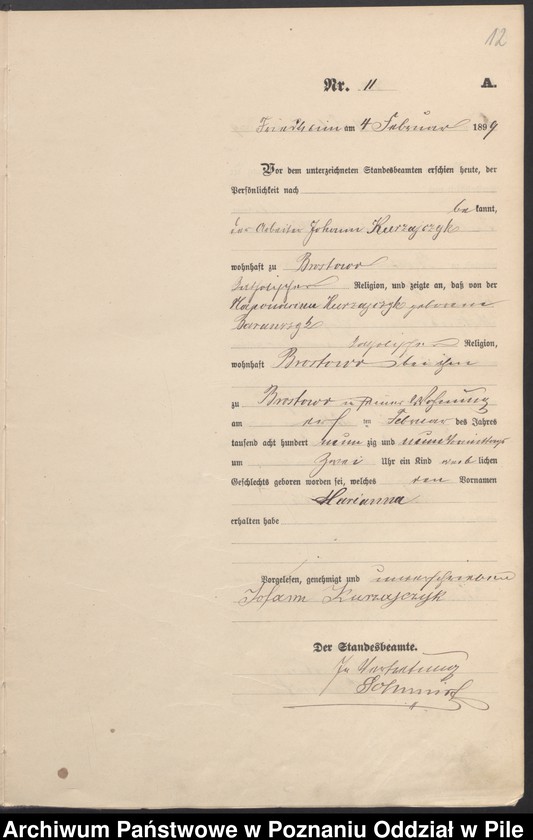 12
Nr. 11 A.
Friedheim am 4 Februar 1899
Vor dem unterzeichneten Standesbeamten erschien heute, der
Persönlichkeit nach
bekannt,
der Arbeiter Johann Kurzajczyk
wohnhaft zu Brostowo
katholischer Religion, und zeigte an, daß von der
Kurzajczyk geborene
katholischer Religion,
wohnhaft Brostowo bei ihm
zu Brostowo in seiner Wohnung
am im Februar des Jahres
tausend acht hundert neunzig und neun
um zwei Uhr ein Kind weiblichen
Geschlechts geboren worden sei, welches den Vornamen
Marianna
erhalten habe
Vorgelesen, genehmigt und unterschrieben
Johann Kurzajczyk
Der Standesbeamte.
In Vertretung
Archiwum Państwowe w Poznaniu Oddział w Pile